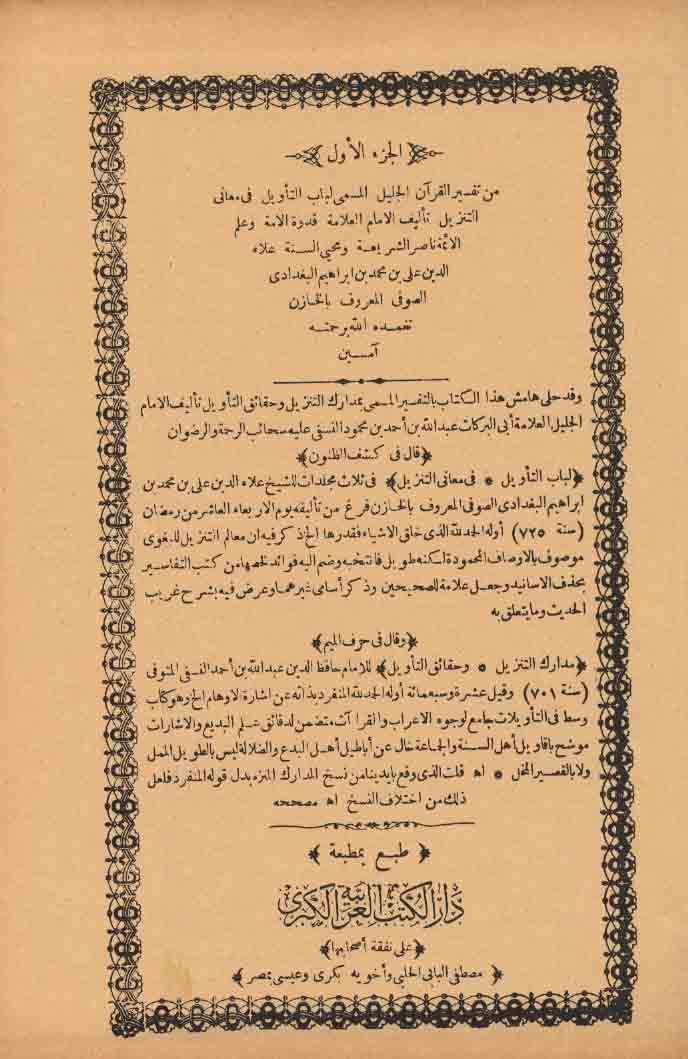 الجزء الأول
من تفسير القرآن الجليل المسمى لباب التأويل فى معانى
التنزيل تأليف الامام العلامة قدوة الامة وعلم
الائمة ناصر الشريعة ومحيى السنة علاء
الدين على بن محمد بن ابراهيم البغدادى
الصوفى المعروف بالخازن
تغمده الله برحمته
آمين
وقد حلى هامش هذا الكتاب بالتفسير المسمى بمدارك التنزيل وحقائق التأويل تأليف الامام
الجليل العلامة أبى البركات عبد الله بن أحمد بن محمود النسفى عليه سحائب الرحمة والرضوان
﴿قال فى كشف الظنون﴾
﴿لباب التأويل * فى معانى التنزيل﴾ فى ثلاث مجلدات للشيخ علاء الدين على بن محمد بن
ابراهيم البغدادى الصوفى المعروف بالخازن فرغ من تأليفه يوم الاربعاء العاشر من رمضان
(سنة ٧٢٥) أوله الحمد لله الذى خلق الاشياء فقدرها الخ ذكر فيه ان معالم التنزيل للبغوى
موصوف بالاوصاف المحمودة لكنه طويل فانتخبه وضم اليه فوائد لخصها من كتب التفاسير
بحذف الاسانيد وجعل علامة للصحيحين وذكر أسامى غيرهما وعرض فيه بشرح غريب
الحديث وما يتعلق به
﴿وقال فى حرف الميم﴾
﴿مدارك التنزيل * وحقائق التأويل﴾ للامام حافظ الدين عبد الله بن أحمد النسفى المتوفى
(سنة ٧٠١) وقيل عشرة وسبعمائة أوله الحمد لله المنفرد بذاته عن اشارة الاوهام الخ وهو كتاب
وسط فى التأويلات جامع لوجوه الاعراب والقراآت متضمن لدقائق علم البديع والاشارات
موشح باقاويل أهل السنة والجماعة خال عن أباطيل أهل البدع والضلالة ليس بالطويل الممل
ولا بالقصير المخل * اه قلت الذى وقع بايدينا من نسخ المدارك المنزه بدل قوله المنفرد فلعل
ذلك من اختلاف النسخ اه مصححه
﴿طبع بمطبعة﴾
دار الكتب العربية الكبرى
﴿على نفقة أصحابها﴾
﴿مصطفى البابى الحلبى وأخويه بكرى وعيسى بمصر﴾